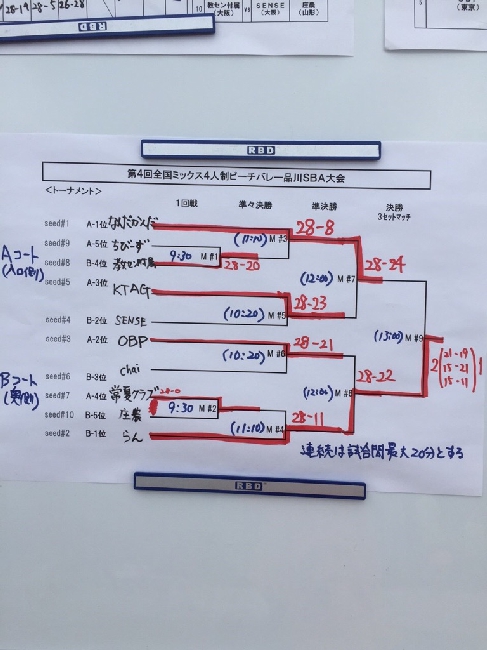 28-19 28-5 26-28
10 教セン付属 (大阪) VS SENSE (大阪) 荘農 (山形)
(東京)
RBD
RBD
第4回全国ミックス4人制ビーチバレー品川SBA大会
<トーナメント>
1回戦 準々決勝 準決勝 決勝
3セットマッチ
Aコート
(入口側)
seed#1 A-1位
seed#9 A-5位 ちびーず
seed#8 B-4位 教セン付属
seed#5 A-3位 KTAG
seed#4 B-2位 SENSE
seed#3 A-2位 OBP
seed#6 B-3位 chai
Bコート
(奥側)
seed#7 A-4位 常夏クラブ
seed#10 B-5位 荘農
seed#2 B-1位 らん
9:30 M #1
28-0
9:30 M #2
(11:10) M #3
28-20
(10:20) M #5
(10:20) M #6
(11:10) M #4
28-8
28-23
28-21
28-11
(12:00) M #7
(12:00) M #8
28-24
28-22
(13:00) M #9
2 (21-19 15-21 15-11) 1
連続は試合間最大20分とする
RBD